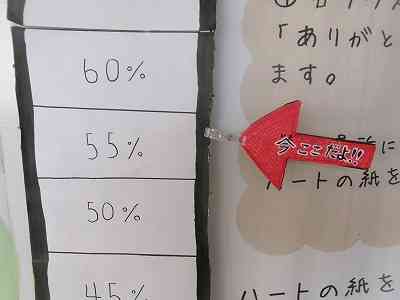 60%
55%
50%
45%
「ありがと
ます。
今ここだよ!!
に
ハートの紙を
ハートの紙を